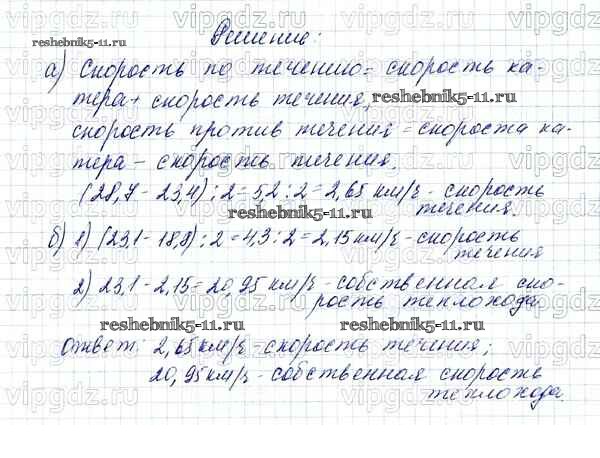 Решение:
а) Скорость по течению = скорость ка-
тера + скорость течения,
скорость против течения = скорость ка-
тера - скорость течения.
(28,7 - 23,4) : 2 = 5,2 : 2 = 2,65 км/ч - скорость
течения.
б) 1) (23,1 - 18,8) : 2 = 4,3 : 2 = 2,15 км/ч - скорость
течения
2) 23,1 - 2,15 = 20,95 км/ч - собственная ско-
рость теплохода
Ответ: 2,65 км/ч - скорость течения;
20,95 км/ч - собственная скорость
теплохода.
reshebnik5-11.ru
reshebnik5-11.ru
reshebnik5-11.ru
reshebnik5-11.ru
reshebnik5-11.ru
vipgdz.ru